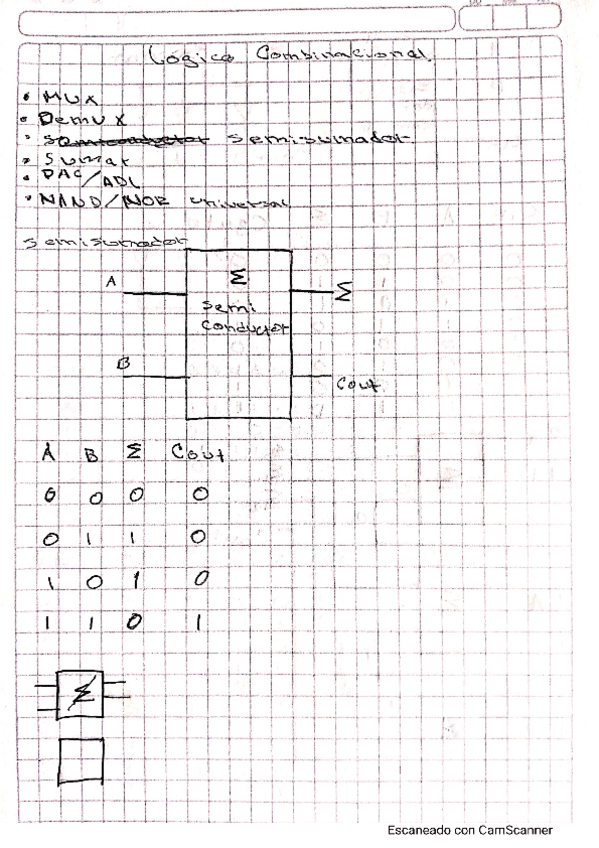 Lógica Combinacional.
• MUX
• Demux
• semiconductor semisumador.
• Sumar
• DAC/ADC
• NAND/NOR universal
semisumador
A Σ Σ
semi
conductor
B Cout
A B Σ Cout
0 0 0 0
0 1 1 0
1 0 1 0
1 1 0 1
Σ
Escaneado con CamScanner